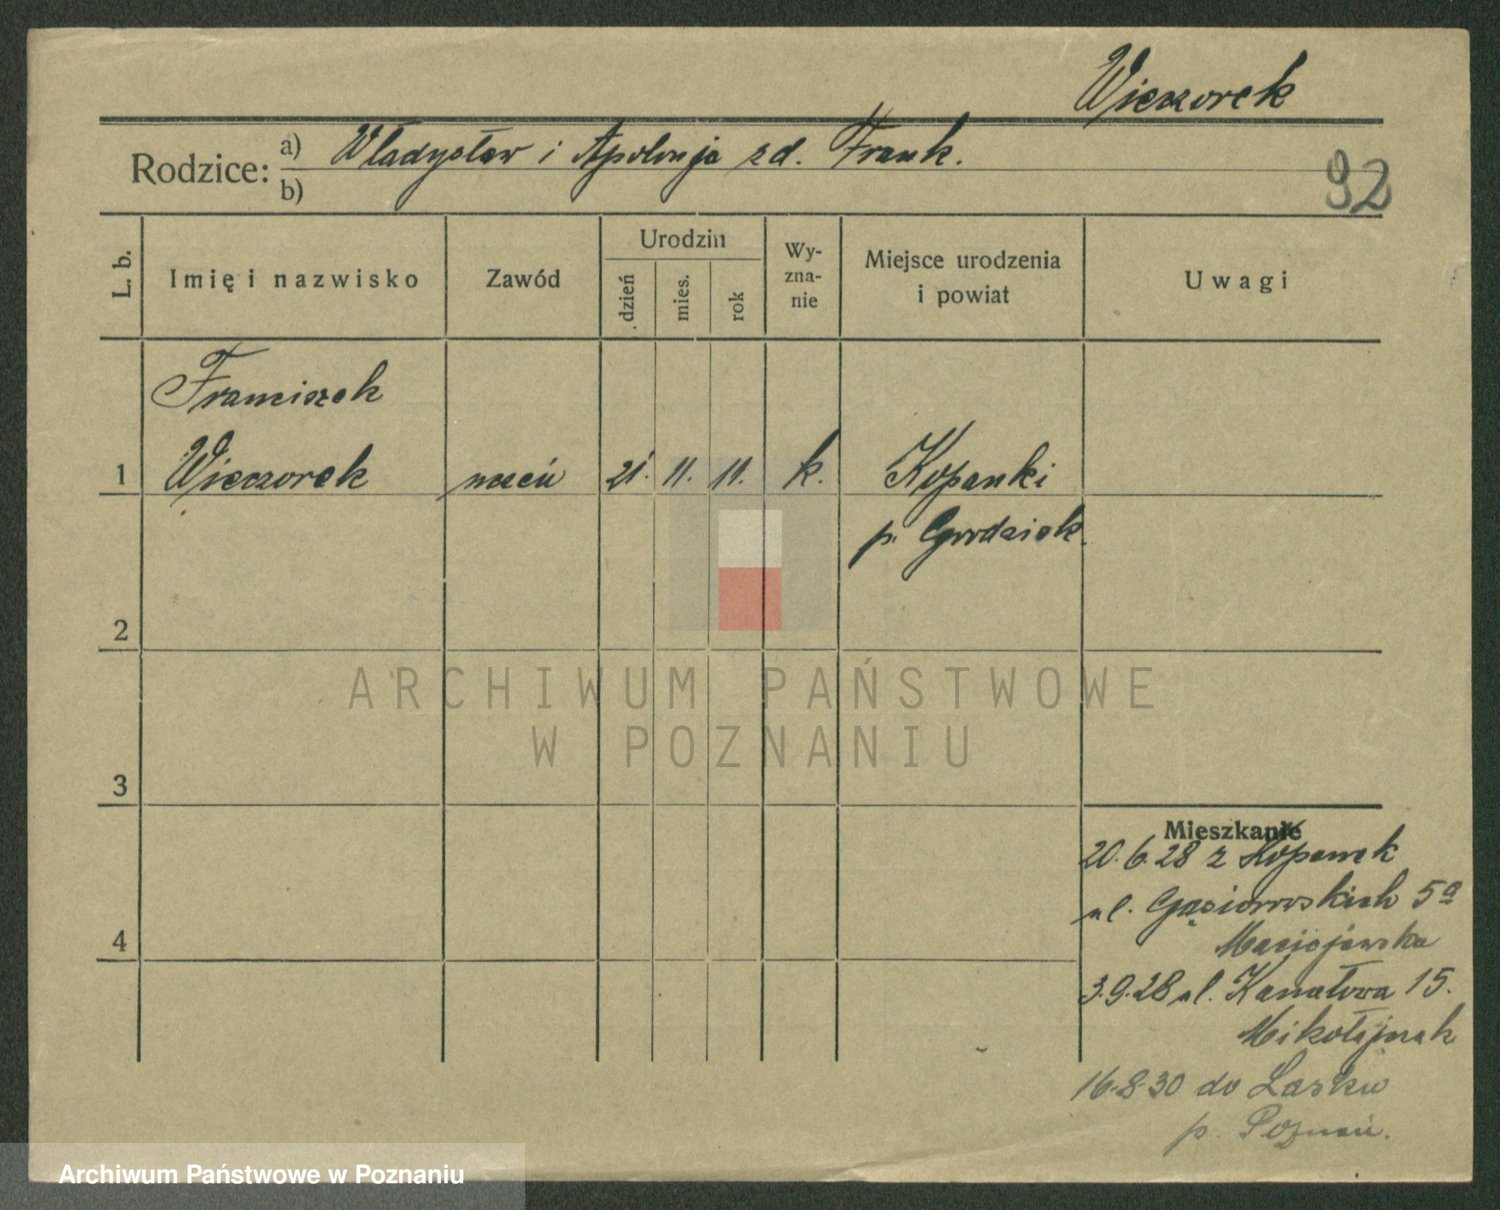 Wieczorek
Rodzice: a) Władysław i Apolonja zd. Frank.
b)
92
L. b.
Imię i nazwisko
Zawód
Urodzin
dzień
mies.
rok
Wy-
zna-
nie
Miejsce urodzenia
i powiat
Uwagi
Franciszek
1 Wieczorek uczeń 21. 11. 11. k. Kopanki
p. Grodzisk.
2
ARCHIWUM PAŃSTWOWE
W POZNANIU
3
4
Mieszkanie
20.6.28 z Kopanek
ul. Gąsiorowskich 5a
Maciejewska
3.9.28 ul. Kanałowa 15.
Mikołajczak
16.8.30 do Lasku
p. Poznań.
Archiwum Państwowe w Poznaniu